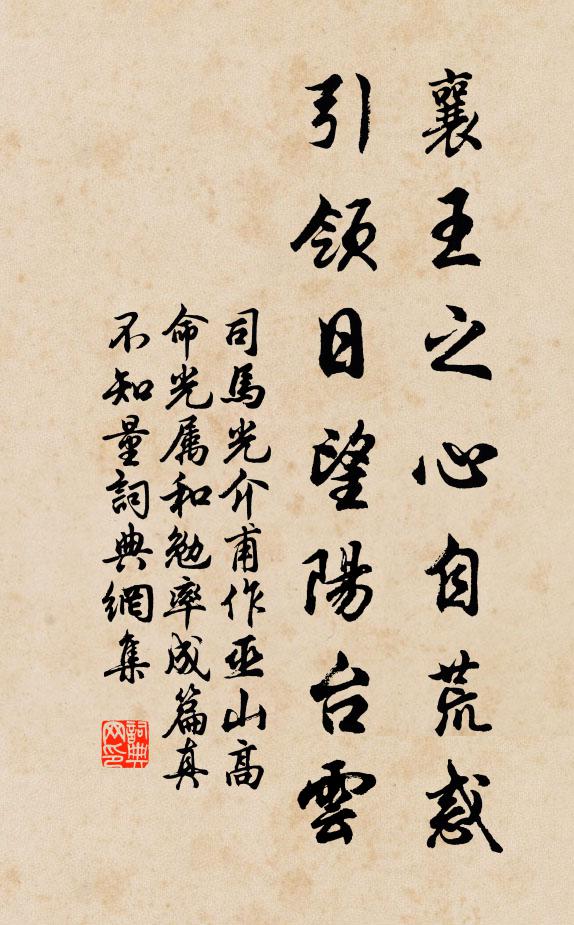 襄王之心自荒惑
引領日望陽台雲
司馬光介甫作巫山高
命光属和勉率成篇真
不知量詞典網集
詞典
网印